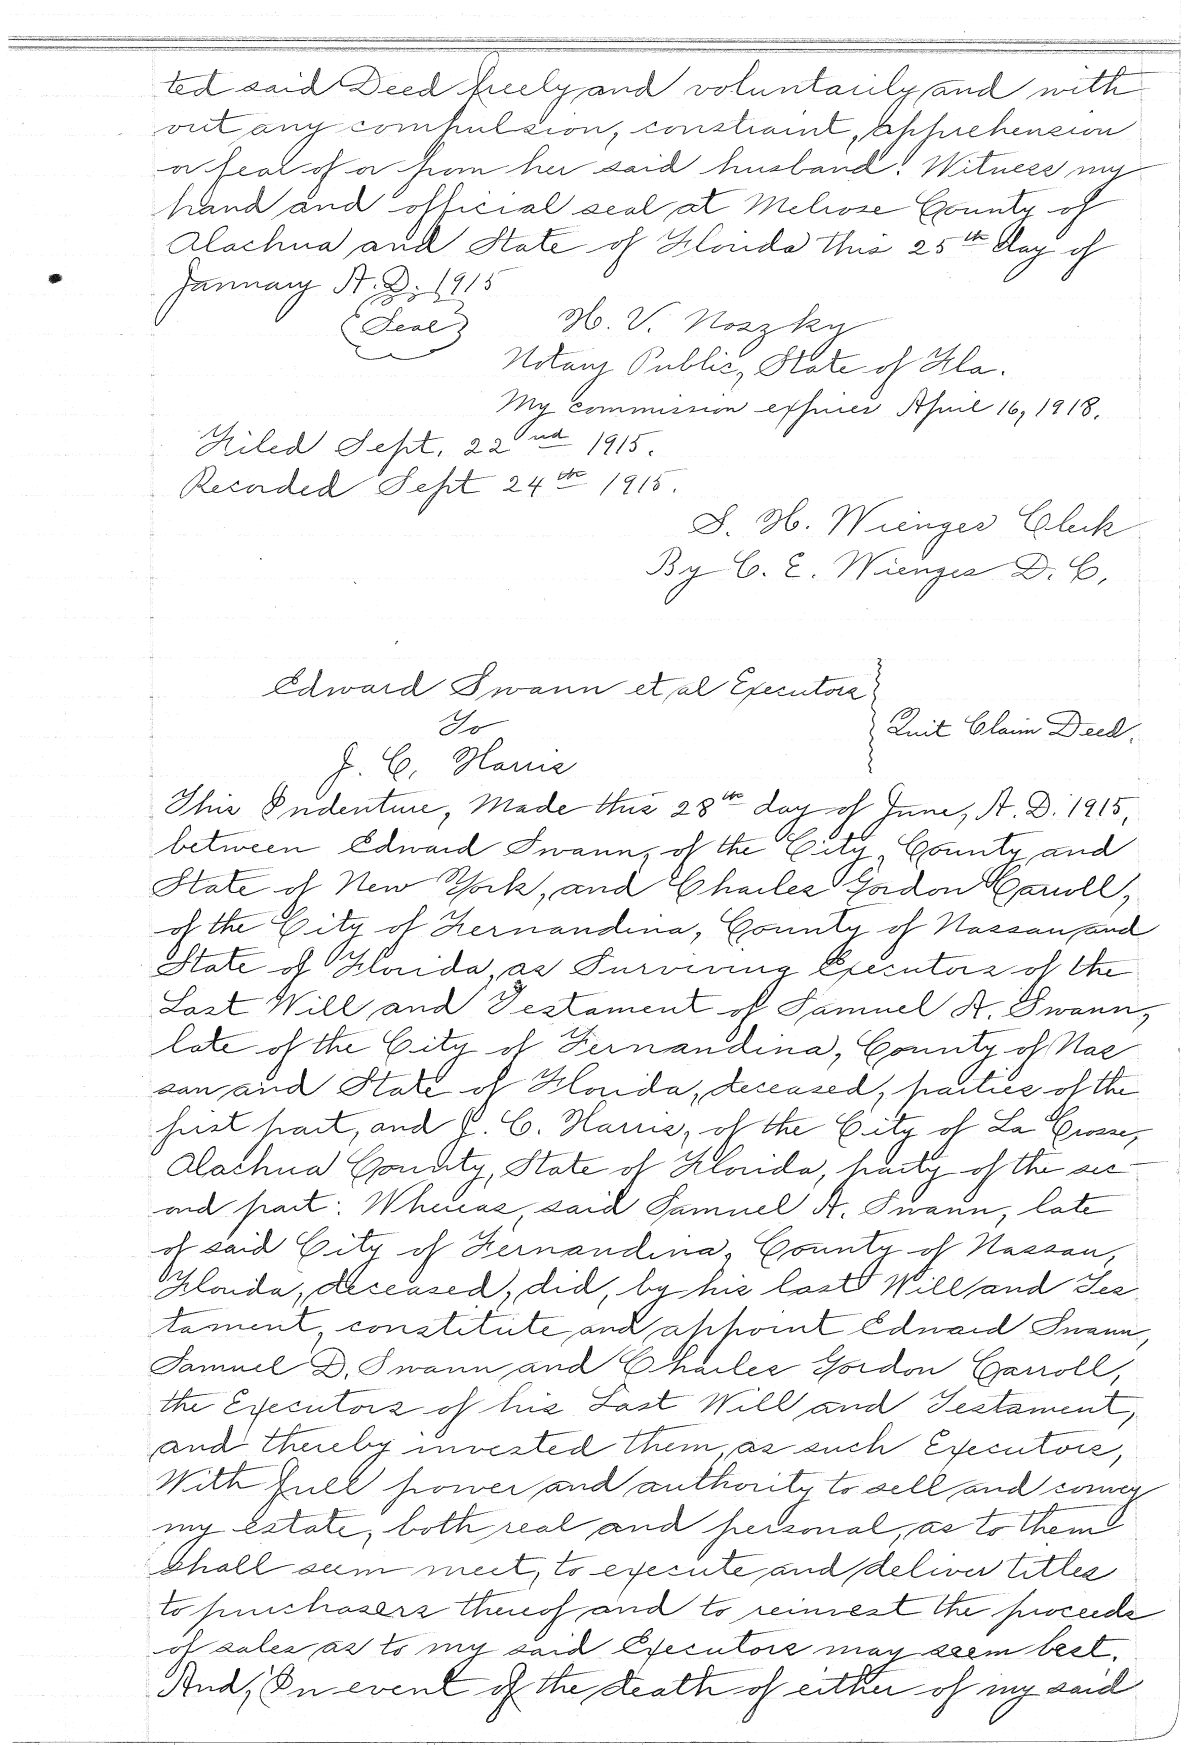 ted said Deed freely and voluntarily and with
out any compulsion, constraint, apprehension
or fear of or from her said husband. Witness my
hand and official seal at Melrose County of
Alachua and State of Florida this 25th day of
January A.D. 1915
(Seal) H. V. Noszky
Notary Public, State of Fla.
My commission expires April 16, 1918.
Filed Sept. 22nd 1915.
Recorded Sept 24th 1915.
S. H. Wienges Clerk
By C. E. Wienges D. C.
Edward Swann et al Executors
To
Quit Claim Deed.
J. C. Harris
This Indenture, Made this 28th day of June, A. D. 1915,
between Edward Swann, of the City, County and
State of New York, and Charles Gordon Carroll,
of the City of Fernandina, County of Nassau and
State of Florida, as Surviving Executors of the
Last Will and Testament of Samuel A. Swann,
late of the City of Fernandina, County of Nas
sau and State of Florida, deceased, parties of the
first part, and J. C. Harris, of the City of La Crosse,
Alachua County, State of Florida, party of the sec
ond part: Whereas, said Samuel A. Swann, late
of said City of Fernandina, County of Nassau,
Florida, deceased, did, by his last Will and Tes
tament, constitute and appoint Edward Swann,
Samuel D. Swann and Charles Gordon Carroll,
the Executors of his Last Will and Testament,
and thereby invested them, as such Executors,
With full power and authority to sell and convey
my estate, both real and personal, as to them
shall seem meet, to execute and deliver titles
to purchasers thereof and to reinvest the proceeds
of sales as to my said Executors may seem best.
And, In event of the death of either of my said